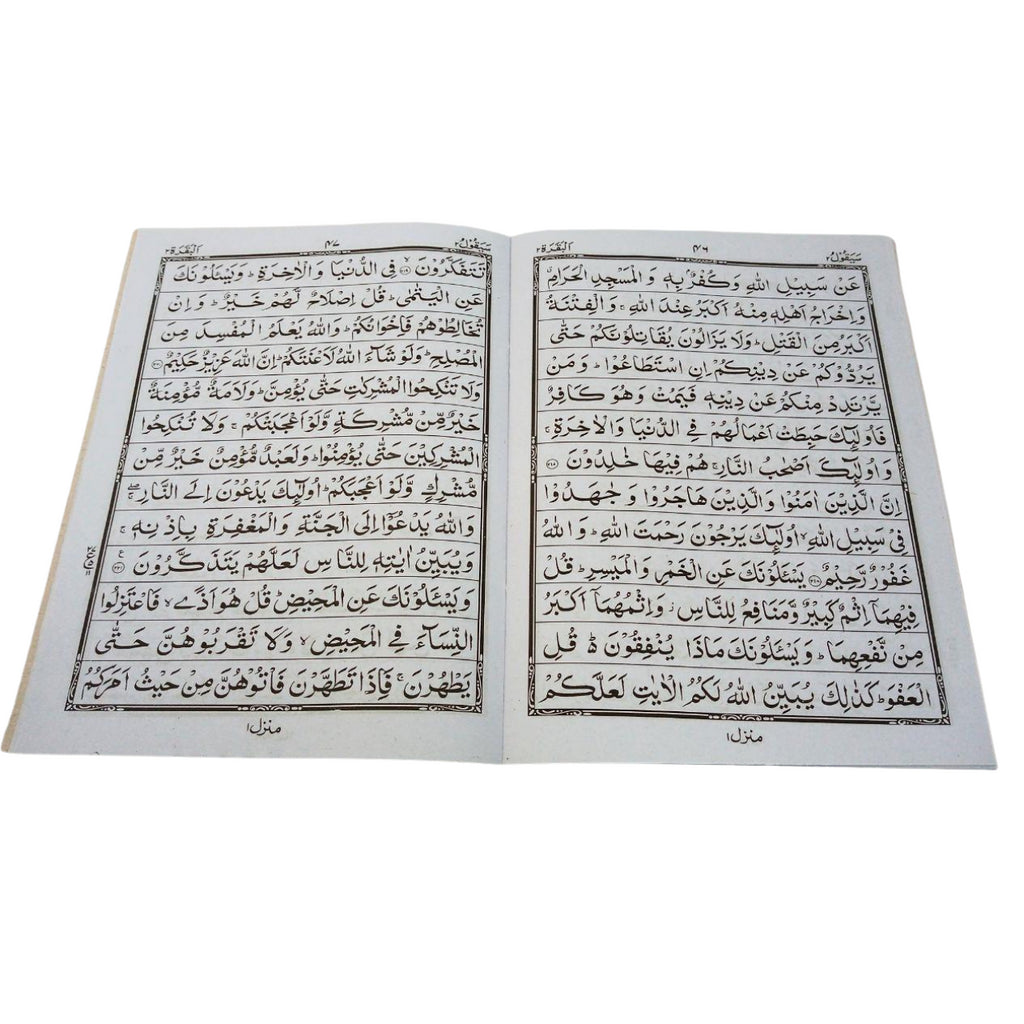 سَيَقُوۡلُ ٢ ۴۶ اَلۡبَقَرَة ٢
عَنۡ سَبِيۡلِ اللّٰهِ وَ كُفۡرٌۢ بِهٖ وَ الۡمَسۡجِدِ الۡحَرَامِ ۗ
وَ اِخۡرَاجُ اَهۡلِهٖ مِنۡهُ اَكۡبَرُ عِنۡدَ اللّٰهِ ۚ وَ الۡفِتۡنَةُ
اَكۡبَرُ مِنَ الۡقَتۡلِ ؕ وَلَا يَزَالُوۡنَ يُقَاتِلُوۡنَكُمۡ حَتّٰى
يَرُدُّوۡكُمۡ عَنۡ دِيۡنِكُمۡ اِنِ اسۡتَطَاعُوۡا ؕ وَ مَنۡ
يَّرۡتَدِدۡ مِنۡكُمۡ عَنۡ دِيۡنِهٖ فَيَمُتۡ وَهُوَ كَافِرٌ
فَاُولٰٓئِكَ حَبِطَتۡ اَعۡمَالُهُمۡ فِى الدُّنۡيَا وَالۡاٰخِرَةِ ۚ
وَ اُولٰٓئِكَ اَصۡحٰبُ النَّارِ ۚ هُمۡ فِيۡهَا خٰلِدُوۡنَ ﴿۲۱۷﴾
اِنَّ الَّذِيۡنَ اٰمَنُوۡا وَ الَّذِيۡنَ هَاجَرُوۡا وَ جٰهَدُوۡا
فِىۡ سَبِيۡلِ اللّٰهِ ۙ اُولٰٓئِكَ يَرۡجُوۡنَ رَحۡمَتَ اللّٰهِ ؕ وَ اللّٰهُ
غَفُوۡرٌ رَّحِيۡمٌ ﴿۲۱۸﴾ يَسۡـَٔلُوۡنَكَ عَنِ الۡخَمۡرِ وَالۡمَيۡسِرِ ؕ قُلۡ
فِيۡهِمَاۤ اِثۡمٌ كَبِيۡرٌ وَّمَنَافِعُ لِلنَّاسِ ۡ وَاِثۡمُهُمَاۤ اَكۡبَرُ
مِنۡ نَّفۡعِهِمَا ؕ وَيَسۡـَٔلُوۡنَكَ مَاذَا يُنۡفِقُوۡنَ ۬ؕ قُلِ
الۡعَفۡوَ ؕ كَذٰلِكَ يُبَيِّنُ اللّٰهُ لَكُمُ الۡاٰيٰتِ لَعَلَّكُمۡ
منزل ١
سَيَقُوۡلُ ٢ ۴۷ اَلۡبَقَرَة ٢
تَتَفَكَّرُوۡنَ ۙ﴿۲۱۹﴾ فِى الدُّنۡيَا وَ الۡاٰخِرَةِ ؕ وَيَسۡـَٔلُوۡنَكَ
عَنِ الۡيَتٰمٰى ؕ قُلۡ اِصۡلَاحٌ لَّهُمۡ خَيۡرٌ ؕ وَ اِنۡ
تُخَالِطُوۡهُمۡ فَاِخۡوَانُكُمۡ ؕ وَاللّٰهُ يَعۡلَمُ الۡمُفۡسِدَ مِنَ
الۡمُصۡلِحِ ؕ وَلَوۡ شَآءَ اللّٰهُ لَاَعۡنَتَكُمۡ ؕ اِنَّ اللّٰهَ عَزِيۡزٌ حَكِيۡمٌ ﴿۲۲۰﴾
وَلَا تَنۡكِحُوا الۡمُشۡرِكٰتِ حَتّٰى يُؤۡمِنَّ ؕ وَلَاَمَةٌ مُّؤۡمِنَةٌ
خَيۡرٌ مِّنۡ مُّشۡرِكَةٍ وَّلَوۡ اَعۡجَبَتۡكُمۡ ۚ وَلَا تُنۡكِحُوا
الۡمُشۡرِكِيۡنَ حَتّٰى يُؤۡمِنُوۡا ؕ وَلَعَبۡدٌ مُّؤۡمِنٌ خَيۡرٌ مِّنۡ
مُّشۡرِكٍ وَّلَوۡ اَعۡجَبَكُمۡ ؕ اُولٰٓئِكَ يَدۡعُوۡنَ اِلَى النَّارِ ۖۚ
وَاللّٰهُ يَدۡعُوۡۤا اِلَى الۡجَنَّةِ وَالۡمَغۡفِرَةِ بِاِذۡنِهٖ ۚ
وَيُبَيِّنُ اٰيٰتِهٖ لِلنَّاسِ لَعَلَّهُمۡ يَتَذَكَّرُوۡنَ ﴿۲۲۱﴾ ع
وَيَسۡـَٔلُوۡنَكَ عَنِ الۡمَحِيۡضِ ؕ قُلۡ هُوَ اَذًى ۙ فَاعۡتَزِلُوا
النِّسَآءَ فِى الۡمَحِيۡضِ ۙ وَلَا تَقۡرَبُوۡهُنَّ حَتّٰى
يَطۡهُرۡنَ ۚ فَاِذَا تَطَهَّرۡنَ فَاۡتُوۡهُنَّ مِنۡ حَيۡثُ اَمَرَكُمُ
منزل ١